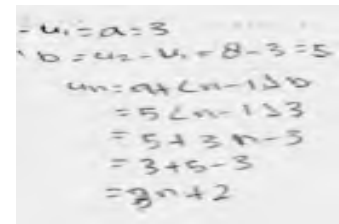 - u₁ = a = 3
b = u₂ - u₁ = 8 - 3 = 5
un = a + (n - 1) b
= 5 (n - 1) 3
= 5 + 3 n - 3
= 3 + 5 - 3
= 3n + 2